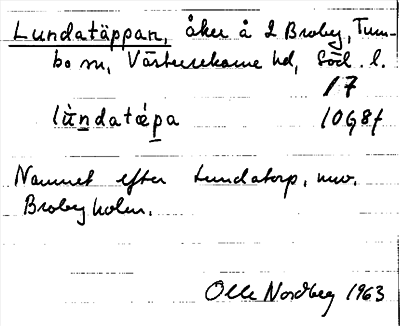 Lundatäppan, åker å 2 Broby, Tum-
bo sn, Västerrekarne hd, Söd. l.
17
lùndatǽpa 10G8f
Namnet efter Lundatorp, nuv.
Brobyholm.
Olle Nordberg 1963